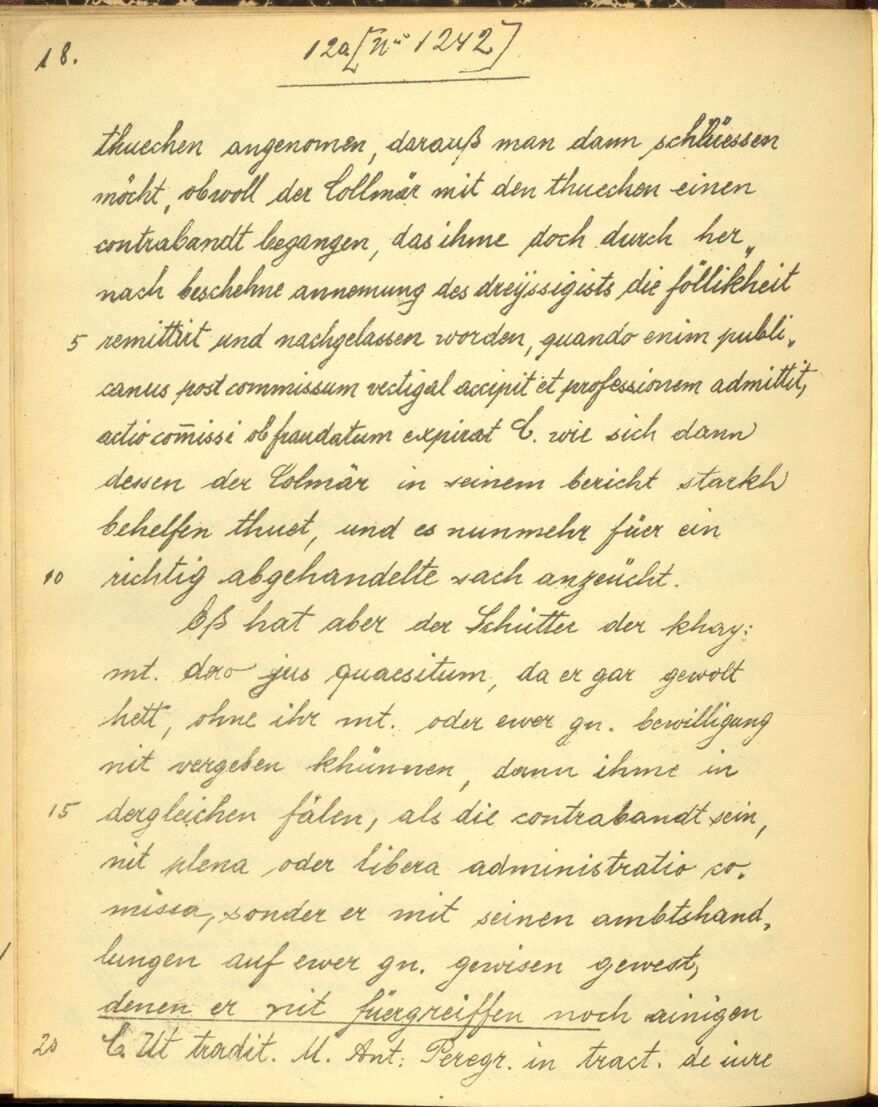 18.
12a [Nº 1242]
thuechen angenomen, darauß man dann schlüessen
möcht, obwoll der Collmär mit den thuechen einen
contrabandt begangen, das ihme doch durch her„
nach beschehne annemung des dreÿssigists die föllikheit
5 remittirt und nachgelassen worden, quando enim publi„
canus post commissum vectigal accipit et professionem admittit,
actio com̄issi ob fraudatum expirat C. wie sich dann
dessen der Colmär in seinem bericht starkh
behelfen thuet, und es nunmehr füer ein
10 richtig abgehandelte sach anzeücht.
Eß hat aber der Schütter der khay:
mt. dero jus quaesitum, da er gar gewolt
hett, ohne ihr mt. oder ewer gn. bewilligung
nit vergeben khünnen, dann ihme in
15 dergleichen fälen, als die contrabandt sein,
nit plena oder libera administratio co„
missa, sonder er mit seinen ambtshand„
lungen auf ewer gn. gewisen gewest,
denen er nit füergreiffen noch ainigen
20 C. Ut tradit. M. Ant: Peregr. in tract. de iure